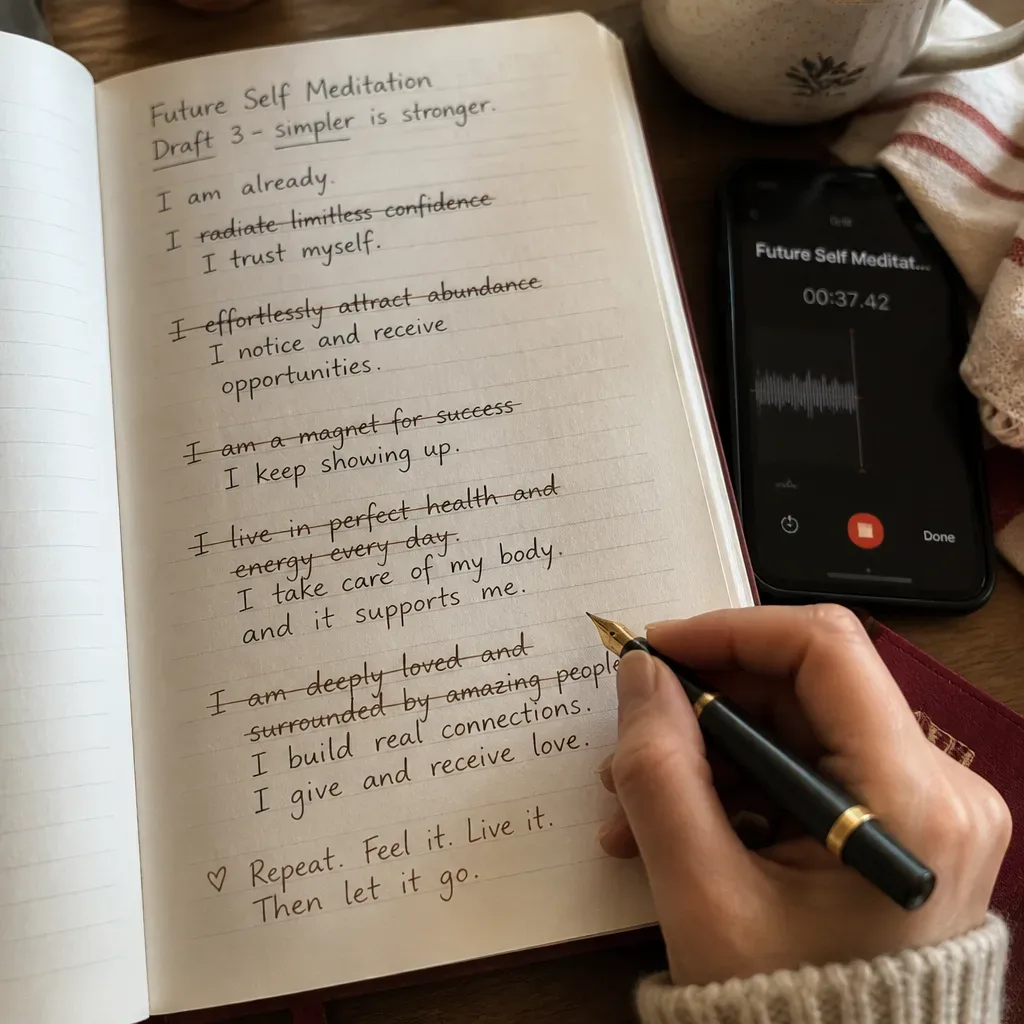 Future Self Meditation
Draft 3 – simpler is stronger.
I am already.
I radiate limitless confidence
I trust myself.
I effortlessly attract abundance
I notice and receive
opportunities.
I am a magnet for success
I keep showing up.
I live in perfect health and
energy every day.
I take care of my body.
and it supports me.
I am deeply loved and
surrounded by amazing people
I build real connections.
I give and receive love.
♡ Repeat. Feel it. Live it.
Then let it go.
Future Self Meditat...
00:37.42
Done